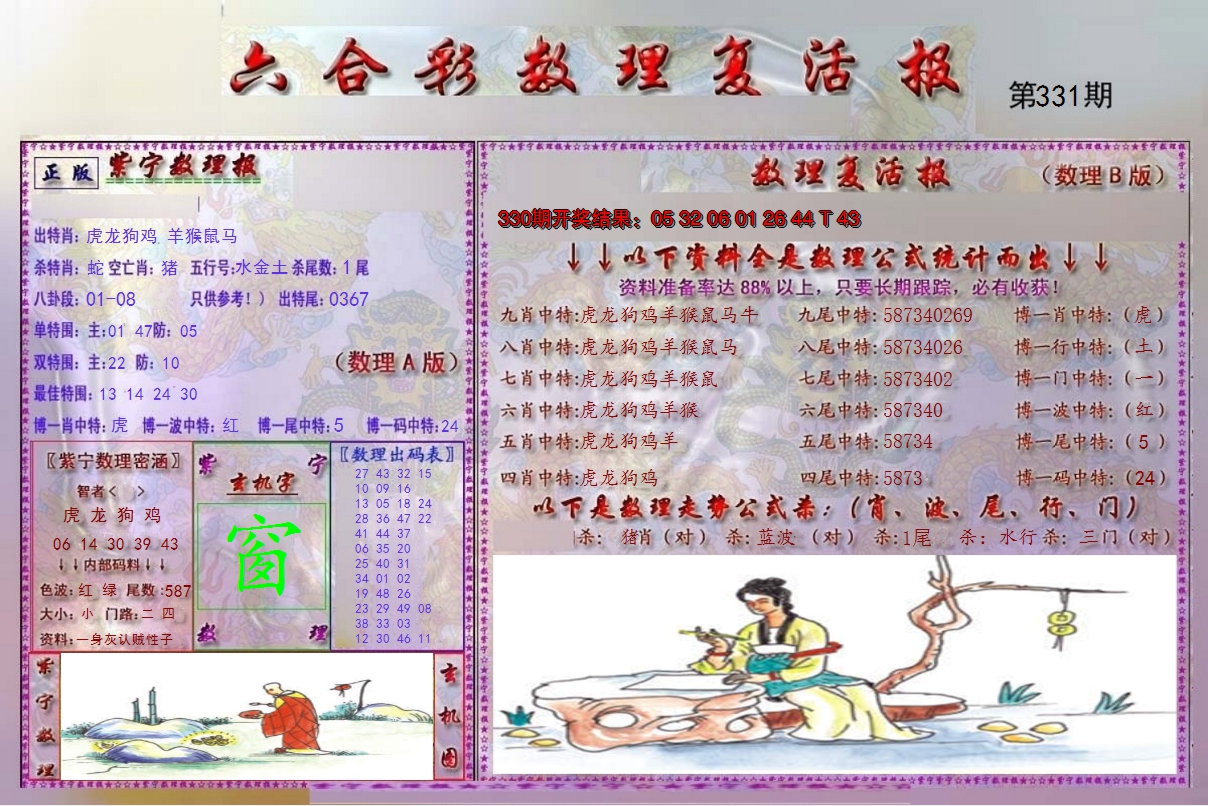 六合彩数理复活报
第331期
正版 紫宁数理报
出特肖: 虎龙狗鸡 羊猴鼠马
杀特肖: 蛇 空亡肖: 猪 五行号:水金土 杀尾数: 1 尾
八卦段: 01-08 只供参考!) 出特尾: 0367
单特围: 主:01 47防: 05
双特围: 主:22 防: 10
(数理A版)
最佳特围: 13 14 24 30
博一肖中特: 虎 博一波中特: 红 博一尾中特: 5 博一码中特:24
〖紫宁数理密涵〗
智者< >
虎 龙 狗 鸡
06 14 30 39 43
↓↓内部码料↓↓
色波: 红 绿 尾数:587
大小: 小 门路:二 四
资料:一身灰认贼性子
紫 宁
玄机字
窗
数 理
〖数理出码表〗
27 43 32 15
10 09 16
13 05 18 24
28 36 47 22
41 44 37
06 35 20
25 40 31
34 01 02
19 48 26
23 29 49 08
38 33 03
12 30 46 11
紫宁数理
玄机图
数理复活报
(数理B版)
330期开奖结果: 05 32 06 01 26 44 T 43
↓↓以下资料全是数理公式统计而出↓↓
资料准备率达 88% 以上, 只要长期跟踪, 必有收获!
九肖中特:虎龙狗鸡羊猴鼠马牛 九尾中特: 587340269 博一肖中特: (虎)
八肖中特:虎龙狗鸡羊猴鼠马 八尾中特: 58734026 博一行中特: (土)
七肖中特:虎龙狗鸡羊猴鼠 七尾中特: 5873402 博一门中特: (一)
六肖中特:虎龙狗鸡羊猴 六尾中特: 587340 博一波中特: (红)
五肖中特:虎龙狗鸡羊 五尾中特: 58734 博一尾中特: (5)
四肖中特:虎龙狗鸡 四尾中特: 5873 博一码中特: (24)
以下是数理走势公式杀: (肖、波、尾、行、门)
杀: 猪肖 (对) 杀: 蓝波 (对) 杀:1尾 杀: 水行 杀: 三门 (对)